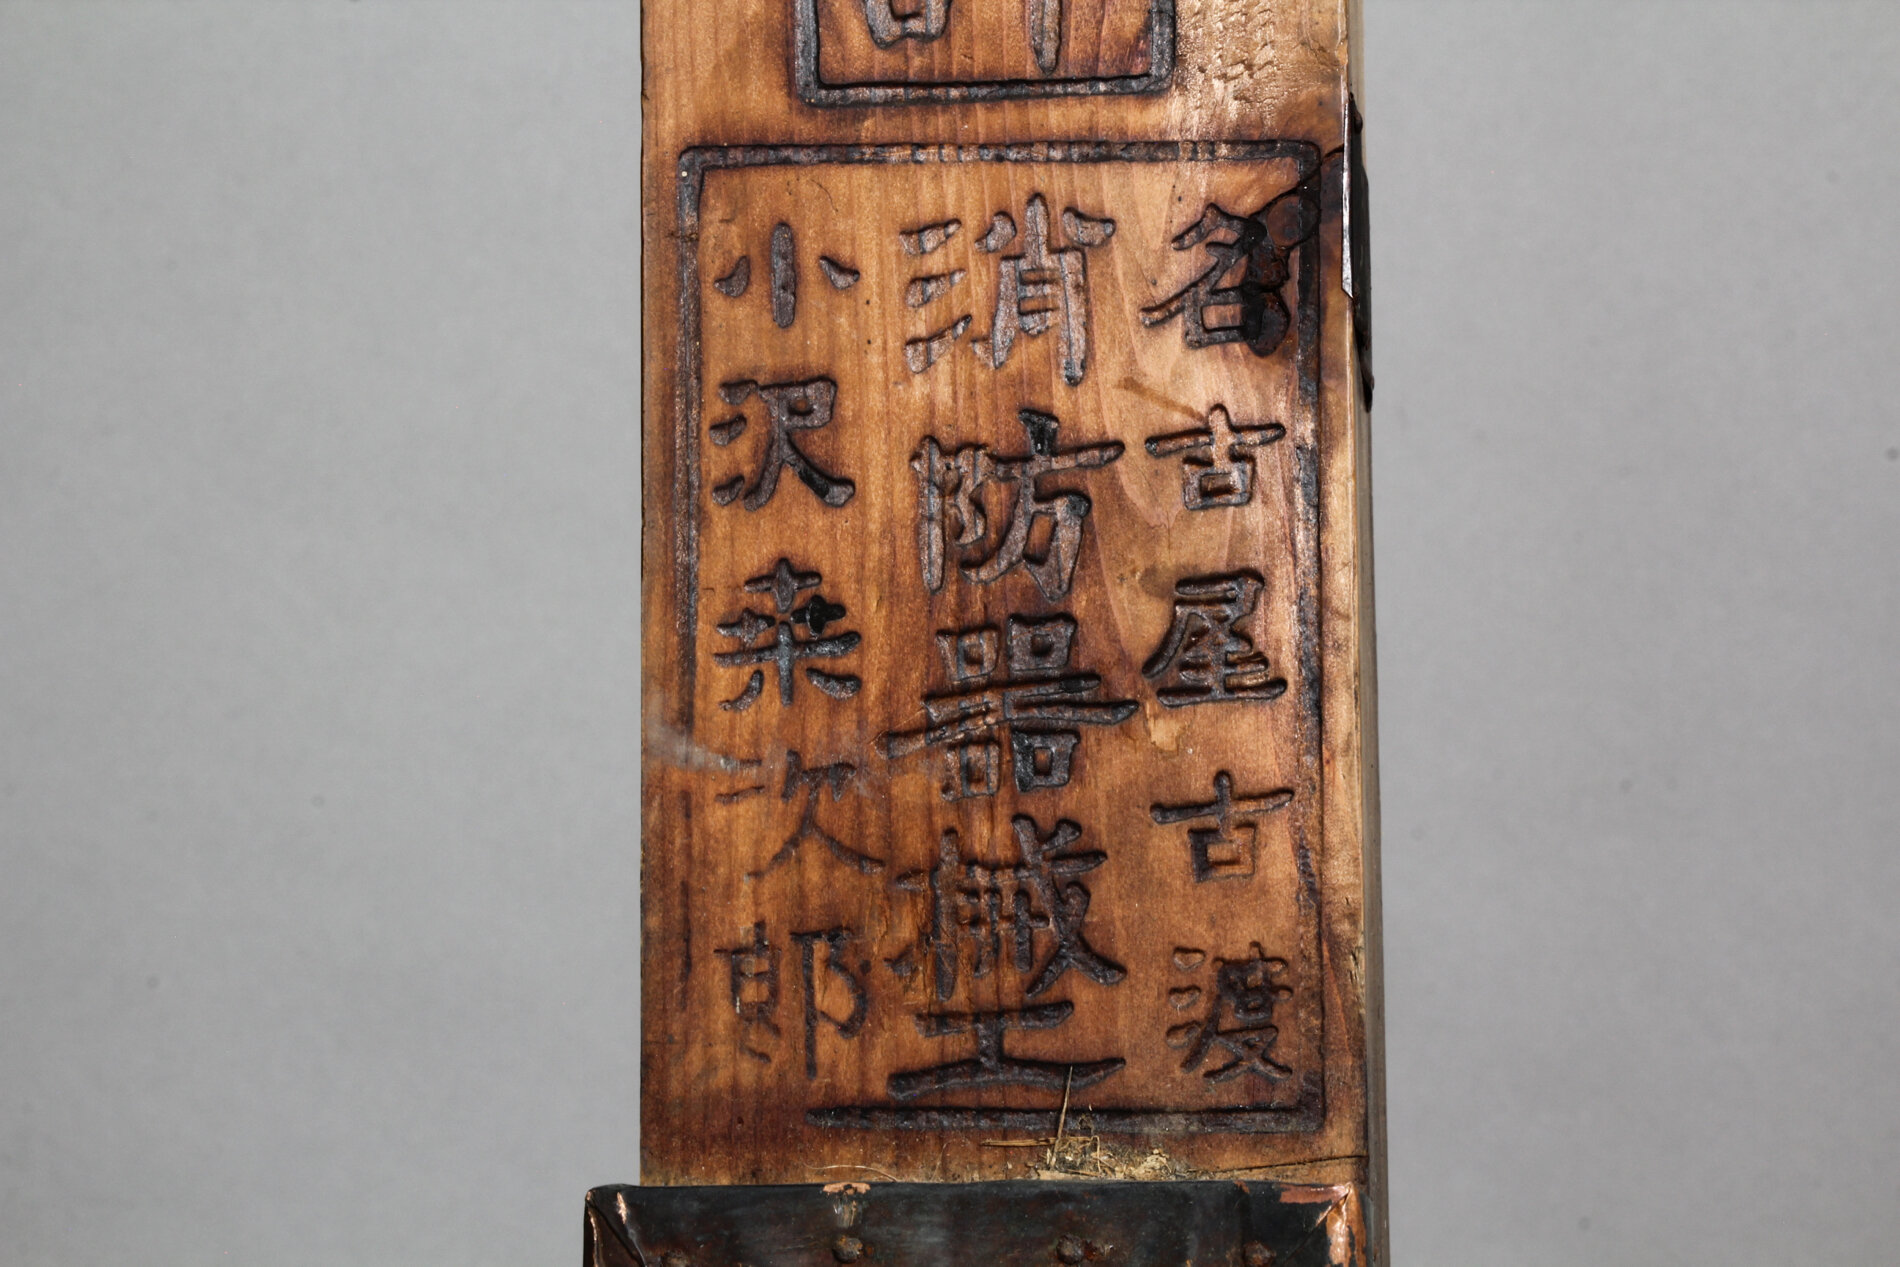 名古屋古渡
消防器械工
小沢桒次郎